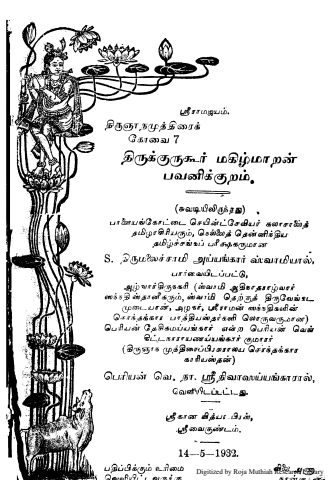 ஸ்ரீராமஜயம்.
திருஞானமுத்திரைக்
கோவை 7
திருக்குருகூர் மகிழ்மாறன்
பவனிக்குறம்.
(சுவடியிலிருந்தது)
பாளையங்கோட்டை செயின்ட்சேவியர் கலாசாலைத்
தமிழாசிரியரும், சென்னைத் தென்னிந்திய
தமிழ்ச்சங்கப் பரீக்ஷகருமான
S. திருமலைச்சாமி அய்யங்கார் ஸ்வாமியால்,
பார்வையிடப்பட்டு,
ஆழ்வார்திருநகரி (ஸ்வாமி ஆதிநாதாழ்வார்
ஸந்நிதிஸ்தானிகரும், ஸ்வாமி தெற்குத் திருவேங்கட
முடையான், அழகர், ஸ்ரீராமன் ஸந்நிதிகளின்
சொந்தக்கார பாத்தியஸ்தர்களி லொருவருமான)
பெரியன் தேசிகமய்யங்கார் என்ற பெரியன் வெங்
கிட்டநாராயணய்யங்கார் குமாரர்
(திருஞான முத்திரைப்பிரசுராலய சொந்தக்கார
காரியஸ்தன்)
பெரியன் வெ. நா. ஸ்ரீநிவாஸய்யங்காரால்,
வெளியிடப்பட்டது.
ஸ்ரீகான வித்யா பிரஸ்,
ஸ்ரீவைகுண்டம்.
14—5—1932.
பதிப்பிக்கும் உரிமை
Digitized by Roja Muthiah Research Library